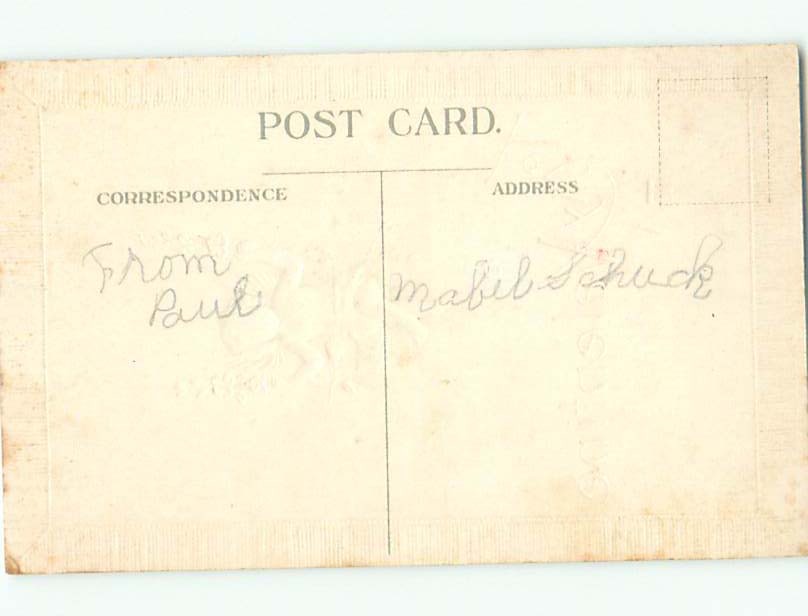 POST CARD.
CORRESPONDENCE
ADDRESS
From
Paul
Mabel Schuck